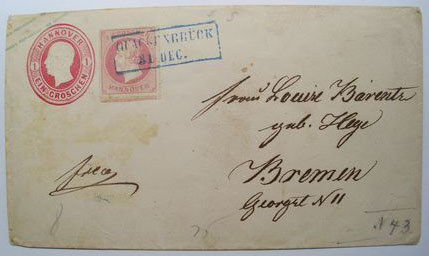 HANNOVER
1 1
EIN GROSCHEN
HANNOVER
QUACKENBRÜCK
31 DEC.
Frau Louise Bärentz
geb. Hege
Bremen
Georgst N 11
N 43